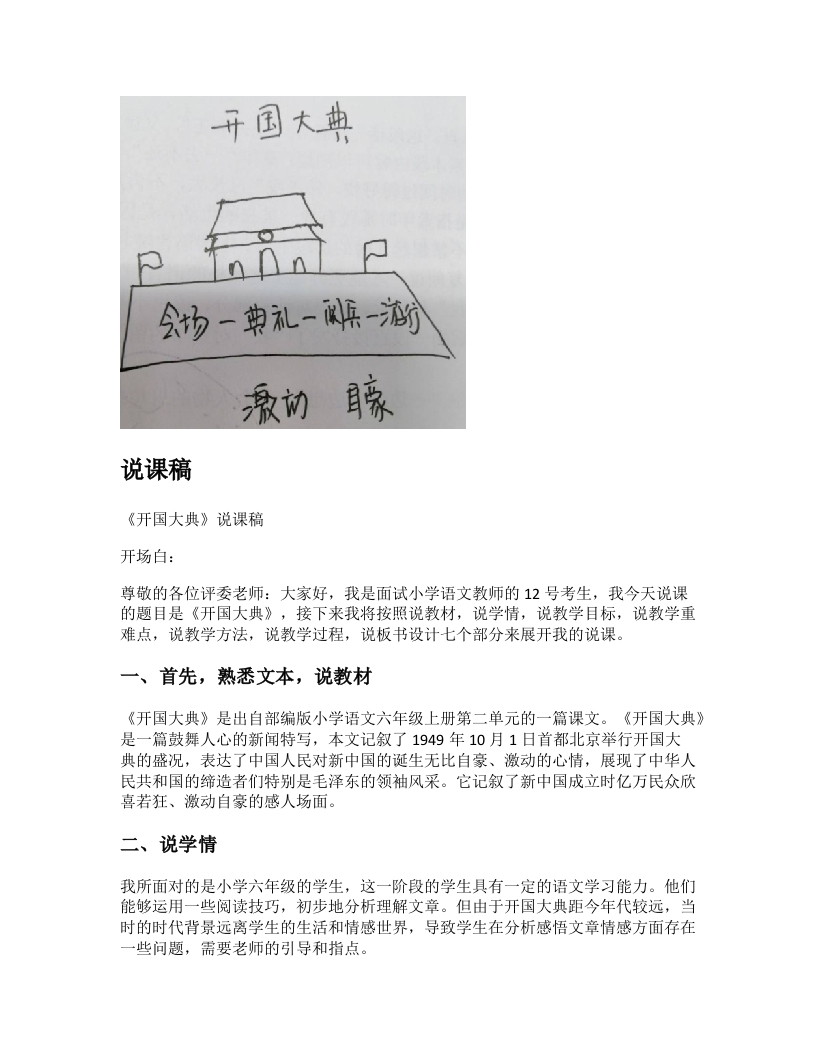 开国大典
会场一典礼一阅兵一游行
激动 自豪
说课稿
《开国大典》说课稿
开场白：
尊敬的各位评委老师：大家好，我是面试小学语文教师的 12 号考生，我今天说课
的题目是《开国大典》，接下来我将按照说教材，说学情，说教学目标，说教学重
难点，说教学方法，说教学过程，说板书设计七个部分来展开我的说课。
一、首先，熟悉文本，说教材
《开国大典》是出自部编版小学语文六年级上册第二单元的一篇课文。《开国大典》
是一篇鼓舞人心的新闻特写，本文记叙了 1949 年 10 月 1 日首都北京举行开国大
典的盛况，表达了中国人民对新中国的诞生无比自豪、激动的心情，展现了中华人
民共和国的缔造者们特别是毛泽东的领袖风采。它记叙了新中国成立时亿万民众欣
喜若狂、激动自豪的感人场面。
二、说学情
我所面对的是小学六年级的学生，这一阶段的学生具有一定的语文学习能力。他们
能够运用一些阅读技巧，初步地分析理解文章。但由于开国大典距今年代较远，当
时的时代背景远离学生的生活和情感世界，导致学生在分析感悟文章情感方面存在
一些问题，需要老师的引导和指点。